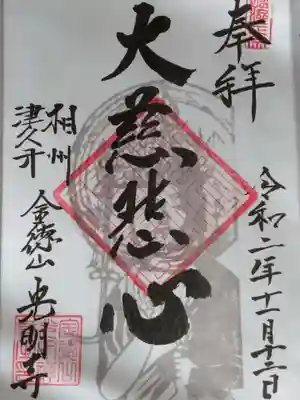 奉拝
令和二年十一月十三日
大慈悲心
相州
津久井
金徳山 光明寺